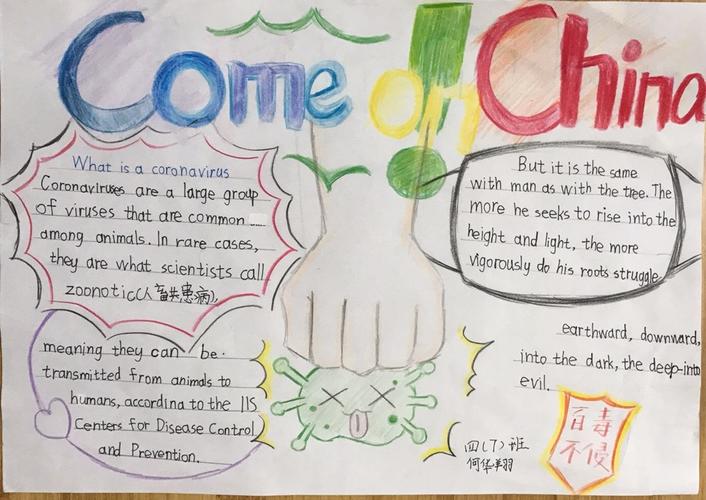 Come on China
What is a coronavirus
Coronaviruses are a large group
of viruses that are common
among animals. In rare cases,
they are what scientists call
zoonotic(人畜共患病),
meaning they can be
transmitted from animals to
humans, accordina to the IIS
Centers for Disease Control
and Prevention.
But it is the same
with man as with the tree. The
more he seeks to rise into the
height and light, the more
vigorously do his roots struggle
earthward, downward,
into the dark, the deep-into
evil.
百毒
不侵
四(7)班
何华翔